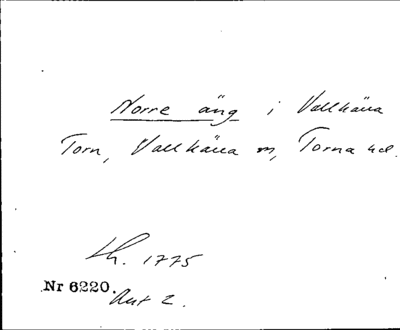 Norre äng i Vallkärra
Torn, Vallkärra sn, Torna hd.
Lh. 1775
Nr 6220.
Akt 2.